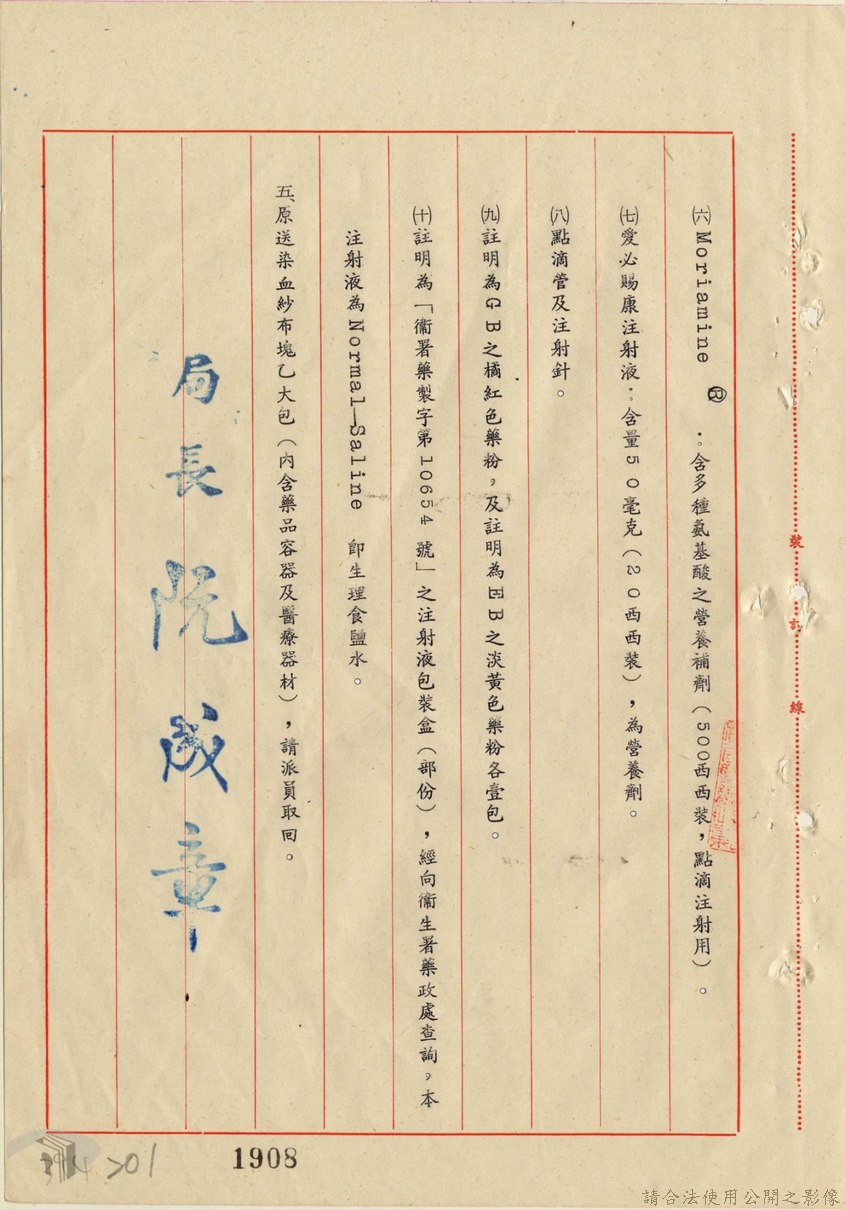 ㈥Moriamine Ⓡ：含多種氨基酸之營養補劑（500西西裝，點滴注射用）。
㈦愛必賜康注射液：含量50毫克（20西西裝），為營養劑。
㈧點滴管及注射針。
㈨註明為GB之橘紅色藥粉，及註明為EB之淡黃色藥粉各壹包。
㈩註明為「衞署藥製字第10654號」之注射液包裝盒（部份），經向衞生署藥政處查詢，本
注射液為Normal—Saline 卽生理食鹽水。
五、原送染血紗布塊乙大包（內含藥品容器及醫療器材），請派員取回。
局長 阮成章
裝訂線
1908
請合法使用公開之影像